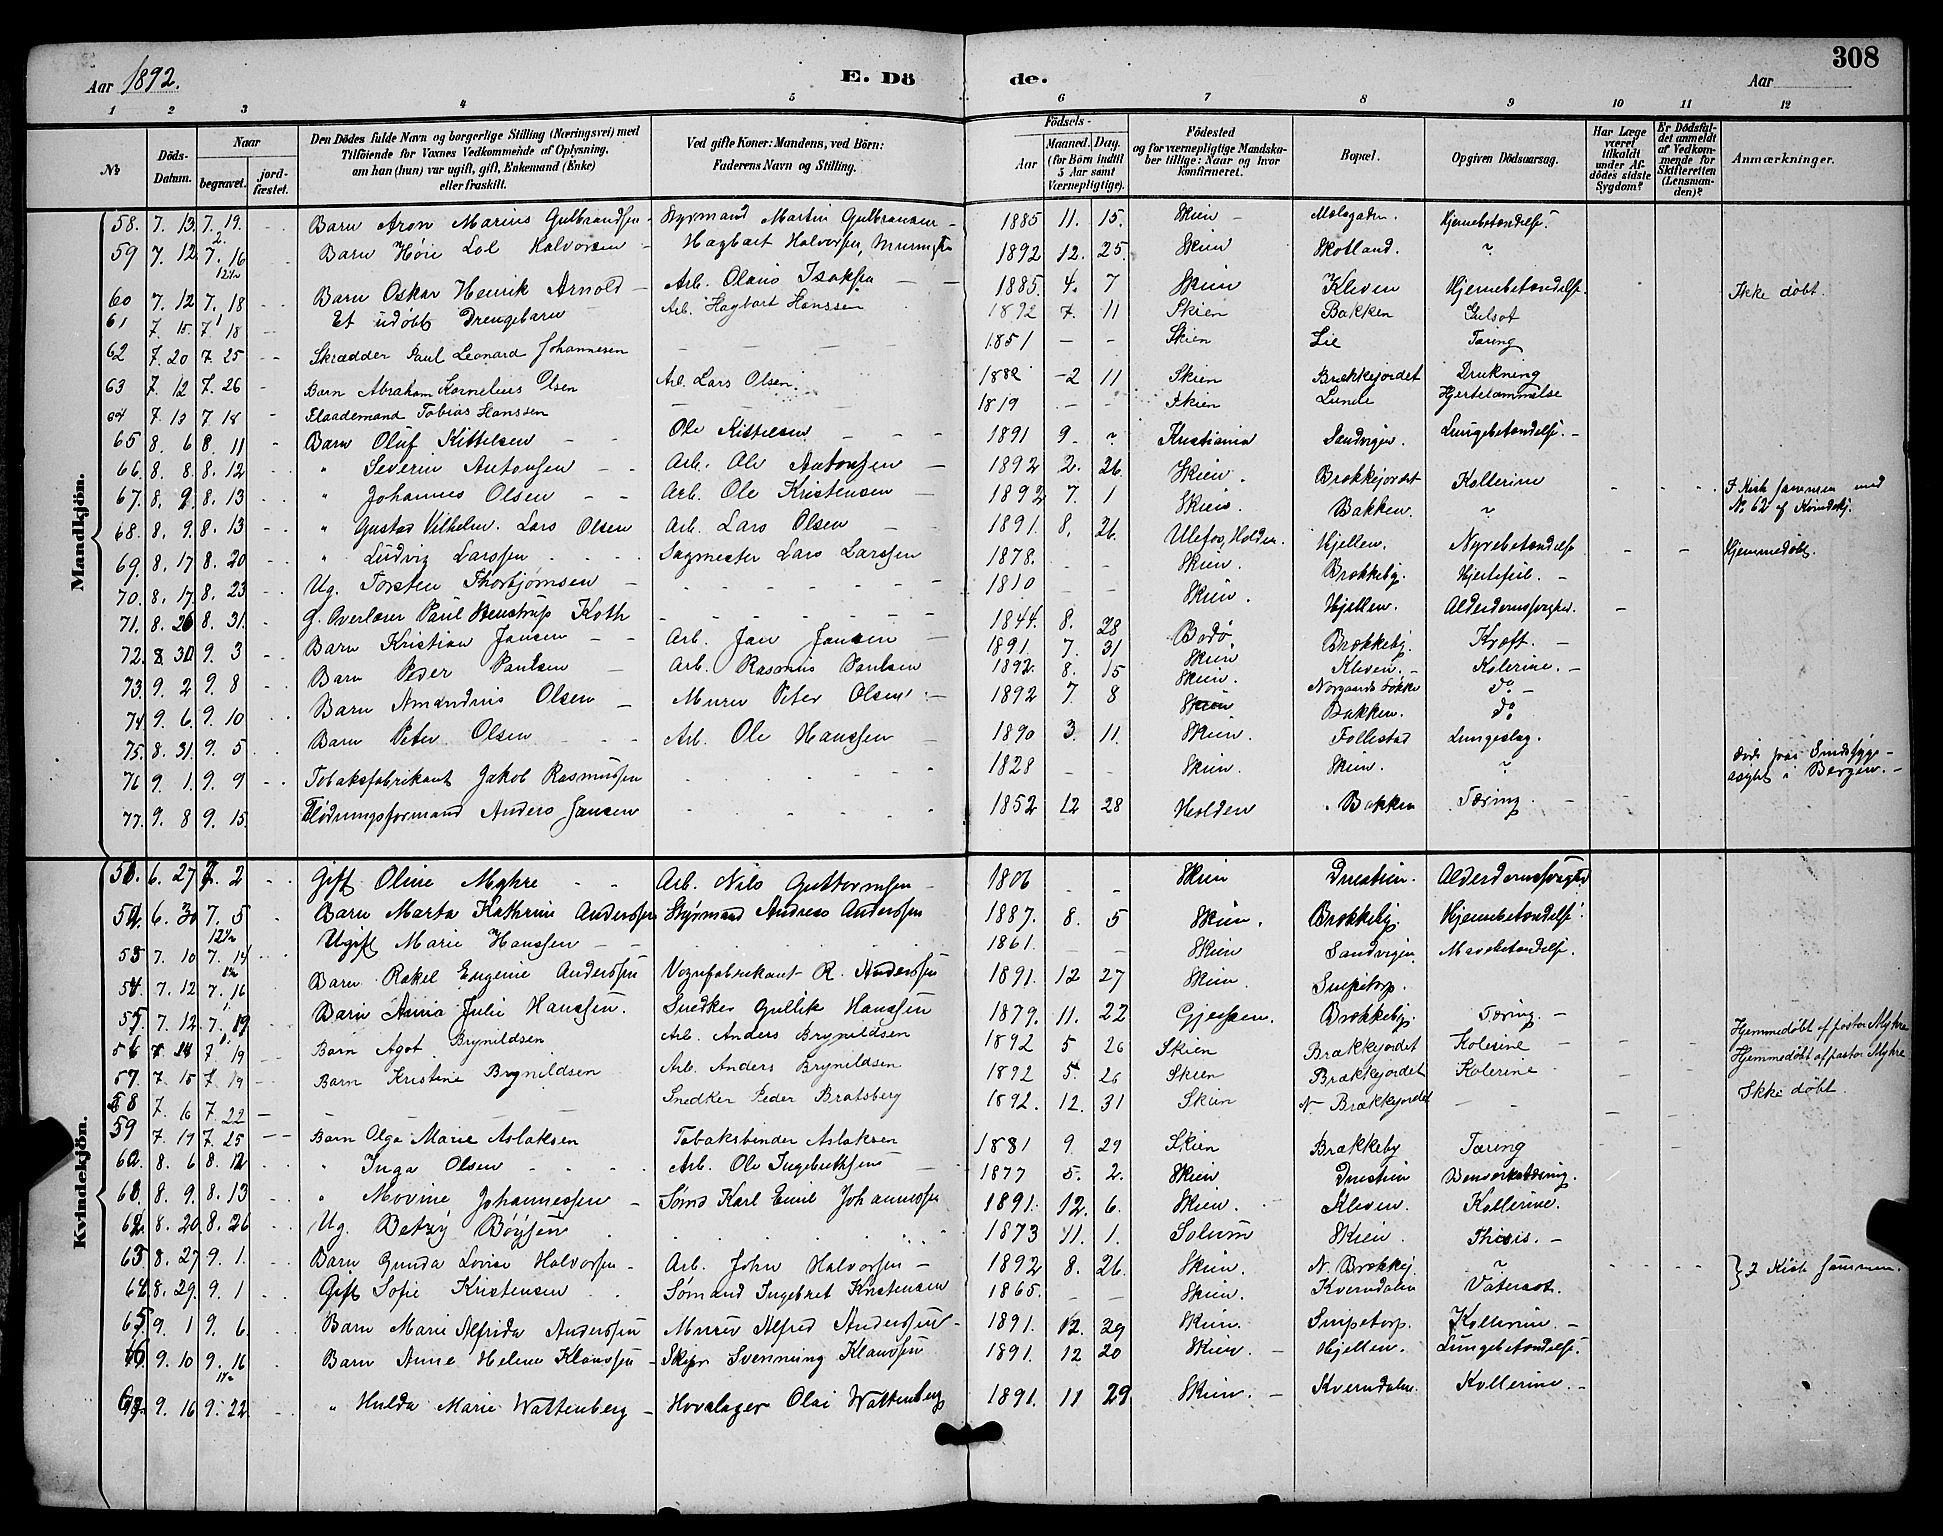 308
Aar 1892. E. Dö de. Aar
1 2 3 4 5 6 7 8 9 10 11 12
№ Döds-Datum. Naar begravet. jord-fæstet. Den Dödes fulde Navn og borgerlige Stilling (Næringsvei) med Tilföiende for Voxnes Vedkommende af Oplysning, om han (hun) var ugift, gift, Enkemand (Enke) eller fraskilt. Ved gifte Koner: Mandens, ved Börn: Faderens Navn og Stilling. Födsels- Aar Maaned. Dag. (for Börn indtil 5 Aar samt Værnepligtige). Födested og for værnepligtige Mandskaber tillige: Naar og hvor konfirmeret. Bopæl. Opgiven Dödsaarsag. Har Læge været tilkaldt under Afdödes sidste Sygdom? Er Dödsfaldet anmeldt af Vedkommende for Skifteretten (Lensmanden)? Anmærkninger.
Mandkjön.
58. 7. 13. 7. 19. Barn Aron Marius Gulbrandsen Styrmand Martin Gulbransen 1885 11. 15. Skien Hjernebetændelse.
59 7. 12 7. 16 Barn Halvorsen Hagbart Halvorsen, 1892 12. 25 Skien Skotland. ?
60 7. 12 7. 18 Barn Oskar Henrik Arnold Arb. Olaus Isaksen 1885. 4. 7 Skien Kleven Hjernebetændelse
61 7. 15. 7. 18 Et udøbt Drengebarn Arb. Hagbart Hanssen 1892 7. 11 Skien Bakken Gulsot Ikke døbt.
62 7. 20 7. 25 Skrædder Paul Leonard Johannesen 1851 Skien Lie Tæring
63 7. 12 7. 26 Barn Abraham Kornelius Olsen Arb. Lars Olsen. 1882 2 11 Skien Brækkejordet Drukning
64 7. 13 7. 18 Flaademand Tobias Hanssen 1819 Skien Lunde Hjertelammelse
65 8. 6 8. 11 Barn Oluf Kittelsen Ole Kittelsen 1891 9. ? Kristiania Sandvigen. Lungebetændelse.
66. 8. 8. 8. 12 " Severin Antonsen Arb. Ole Antonsen 1892 2. 26. Skien. Brækkejordet Kollerine
67. 8. 9. 8. 13 " Johannes Olsen Arb. Ole Kristensen 1892 7. 1 Skien. Bakken. ? I Kiste sammen med No. 62 af Kvindekj.
68. 8. 9. 8. 13 " Gustav Vilhelm. Lars Olsen Arb. Lars Olsen 1891. 8. 26. Ulefos, Holden. Hjellen. Nyrebetændelse Hjemmedøbt.
69. 8. 17 8. 20 " Ludvig Larssen Sagmester Lars Larssen 1878. Skien. Brækkeby. Hjertefeil.
70. 8. 17 8. 23 Ug. Torsten Thorbjørnsen 1810 Skien. Hjellen. Alderdomssvaghed.
71. 8. 26 8. 31. G. Overlærer Paul Koth 1844. 8. 28 Bodø Brækkeby. Kræft.
72. 8. 30 9. 3 Barn Kristian Jansen Arb. Jan Jansen 1891. 7. 31 Skien Kleven. Kolerine.
73. 9. 2 9. 8 Barn Peder Paulsen Arb. Rasmus Paulsen 1892. 8. 15 Skien. Norgaards Løkke do
74. 9. 6. 9. 10 Barn Amandus Olsen Murer Peter Olsen 1892 7. 8 Skien Bakken. do
75. 8. 31. 9. 5 Barn Peter Olsen Arb. Ole Hanssen 1890 3. 11. Skien. Follestad Lungeslag.
76 9. 1. 9. 9 Tobaksfabrikant Jakob Rasmussen 1828 Skien. Skien. ? Døde paa Sindssygeasylet i Bergen.
77. 9. 8 9. 15. Flødningsformand Anders Jansen 1852 12 28 Holden Bakken Tæring.
Kvindekjön.
51. 6. 27 7. 2 Gift Oline Myhre Arb. Nils Guttormsen 1806 Skien Duestien. Alderdomssvaghed
52. 6. 30 7. 5 Barn Marta Kathrine Anderssen Styrmand Andreas Anderssen 1887. 8. 5 Skien. Brækkeby. Hjernebetændelse.
53 7. 10 7. 14 Ugift Marie Hanssen 1861. Skien Sandvigen. Mavebetændelse.
54. 7. 12 7. 16 Barn Rakel Eugenie Anderssen Vognfabrikant R. Anderssen 1891. 12 27 Skien. Snipetorp.
55. 7. 12. 7. 19 Barn Anna Julie Hanssen. Snedker Gullik Hanssen 1879. 11. 22 Gjerpen. Brækkeby. Tæring.
56 7. 24 7. 19 Barn Agot Brynildsen Arb. Anders Brynildsen 1892 5 26 Skien Brækkejordet Kolerine Hjemmedøbt af pastor Myhre
57. 7. 15 7. 19 Barn Kristine Brynildsen Arb. Anders Brynildsen 1892 5. 26 Skien Brækkejordet Kolerine Hjemmedøbt af pastor Myhre
58 7. 16 7. 22 Snedker Peder Bratsberg 1892. 12. 31 Skien N. Brækkejordet Ikke døbt
59 7. 17 7. 25 Barn Olga Marie Aslaksen Tobaksbinder Aslaksen 1881 9. 29 Skien Brækkeby Tæring
60. 8. 6 8. 12 " Inga Olsen Arb. Ole Ingebrethsen 1877 5. 2. Skien Duestien
61. 8. 9. 8. 13 " Movine Johannessen Sømd Karl Emil Johannessen 1891. 12. 6. Skien. Kleven. Kollerine.
62. 8. 20. 8. 26 Ug. Betzy Bøysen 1873 11. 1. Solum Skien. Thisis.
63. 8. 27 9. 1. Barn Gunda Lovise Halvorsen Arb. John Halvorsen 1892 8. 26. Skien. N. Brækkej. ? } I Kiste sammen.
64. 8. 29. 9. 1 Gift Sofie Kristensen Sømand Ingebret Kristensen 1865. Skien. Kverndalen Vatersot.
65. 9. 1 9. 6. Barn Marie Alfrida Anderssen Murer Alfred Anderssen 1891. 12. 29 Skien. Snipetorp. Kollerine.
66. 9. 10 9. 16 Barn Anne Helene Klaussen Svennung Klaussen 1891. 12 20 Skien. Hjellen. Lungebetændelse.
67. 9. 16 9. 22. " Hulda Marie Wattenberg Hovslager Olai Wattenberg 1891. 11 29 Skien. Kverndalen. Kollerine.